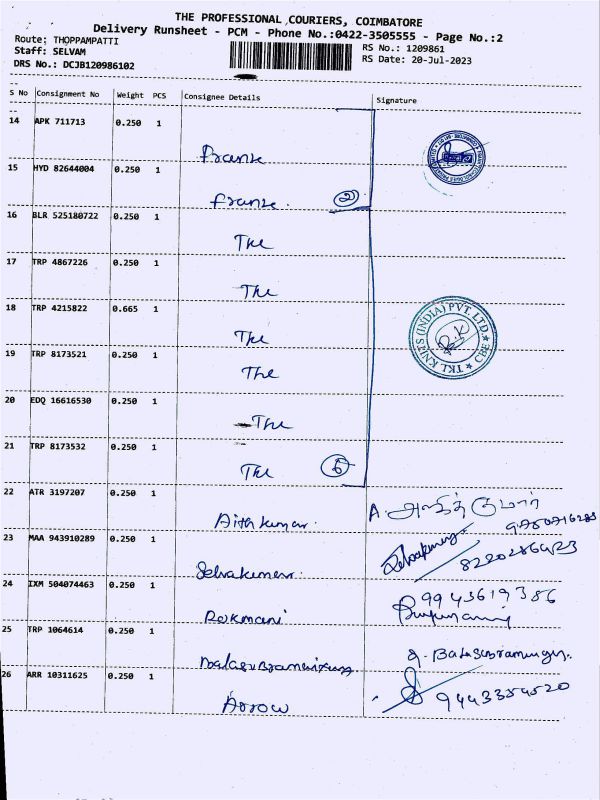 THE PROFESSIONAL COURIERS, COIMBATORE
Delivery Runsheet - PCM - Phone No.:0422-3505555 - Page No.:2
Route: THOPPAMPATTI
RS No.: 1209861
Staff: SELVAM
RS Date: 20-Jul-2023
DRS No.: DCJB120986102
S No Consignment No Weight PCS Consignee Details Signature
14 APK 711713 0.250 1
Franse
15 HYD 82644004 0.250 1
Franse. 2
16 BLR 525180722 0.250 1
The
17 TRP 4867226 0.250 1
The
18 TRP 4215822 0.665 1
The
TKT KNITS (INDIA) PVT. LTD. ★ CBE ★
R.K
19 TRP 8173521 0.250 1
The
20 EDQ 16616530 0.250 1
The
21 TRP 8173532 0.250 1
The 6
22 ATR 3197207 0.250 1
Ajithkumar. A. அஜித் குமார்
23 MAA 943910289 0.250 1
Selvakumar. 8220286423
24 IXM 504074463 0.250 1
Rukmani 9943619386
25 TRP 1064614 0.250 1
26 ARR 10311625 0.250 1
Arrow 9443354520